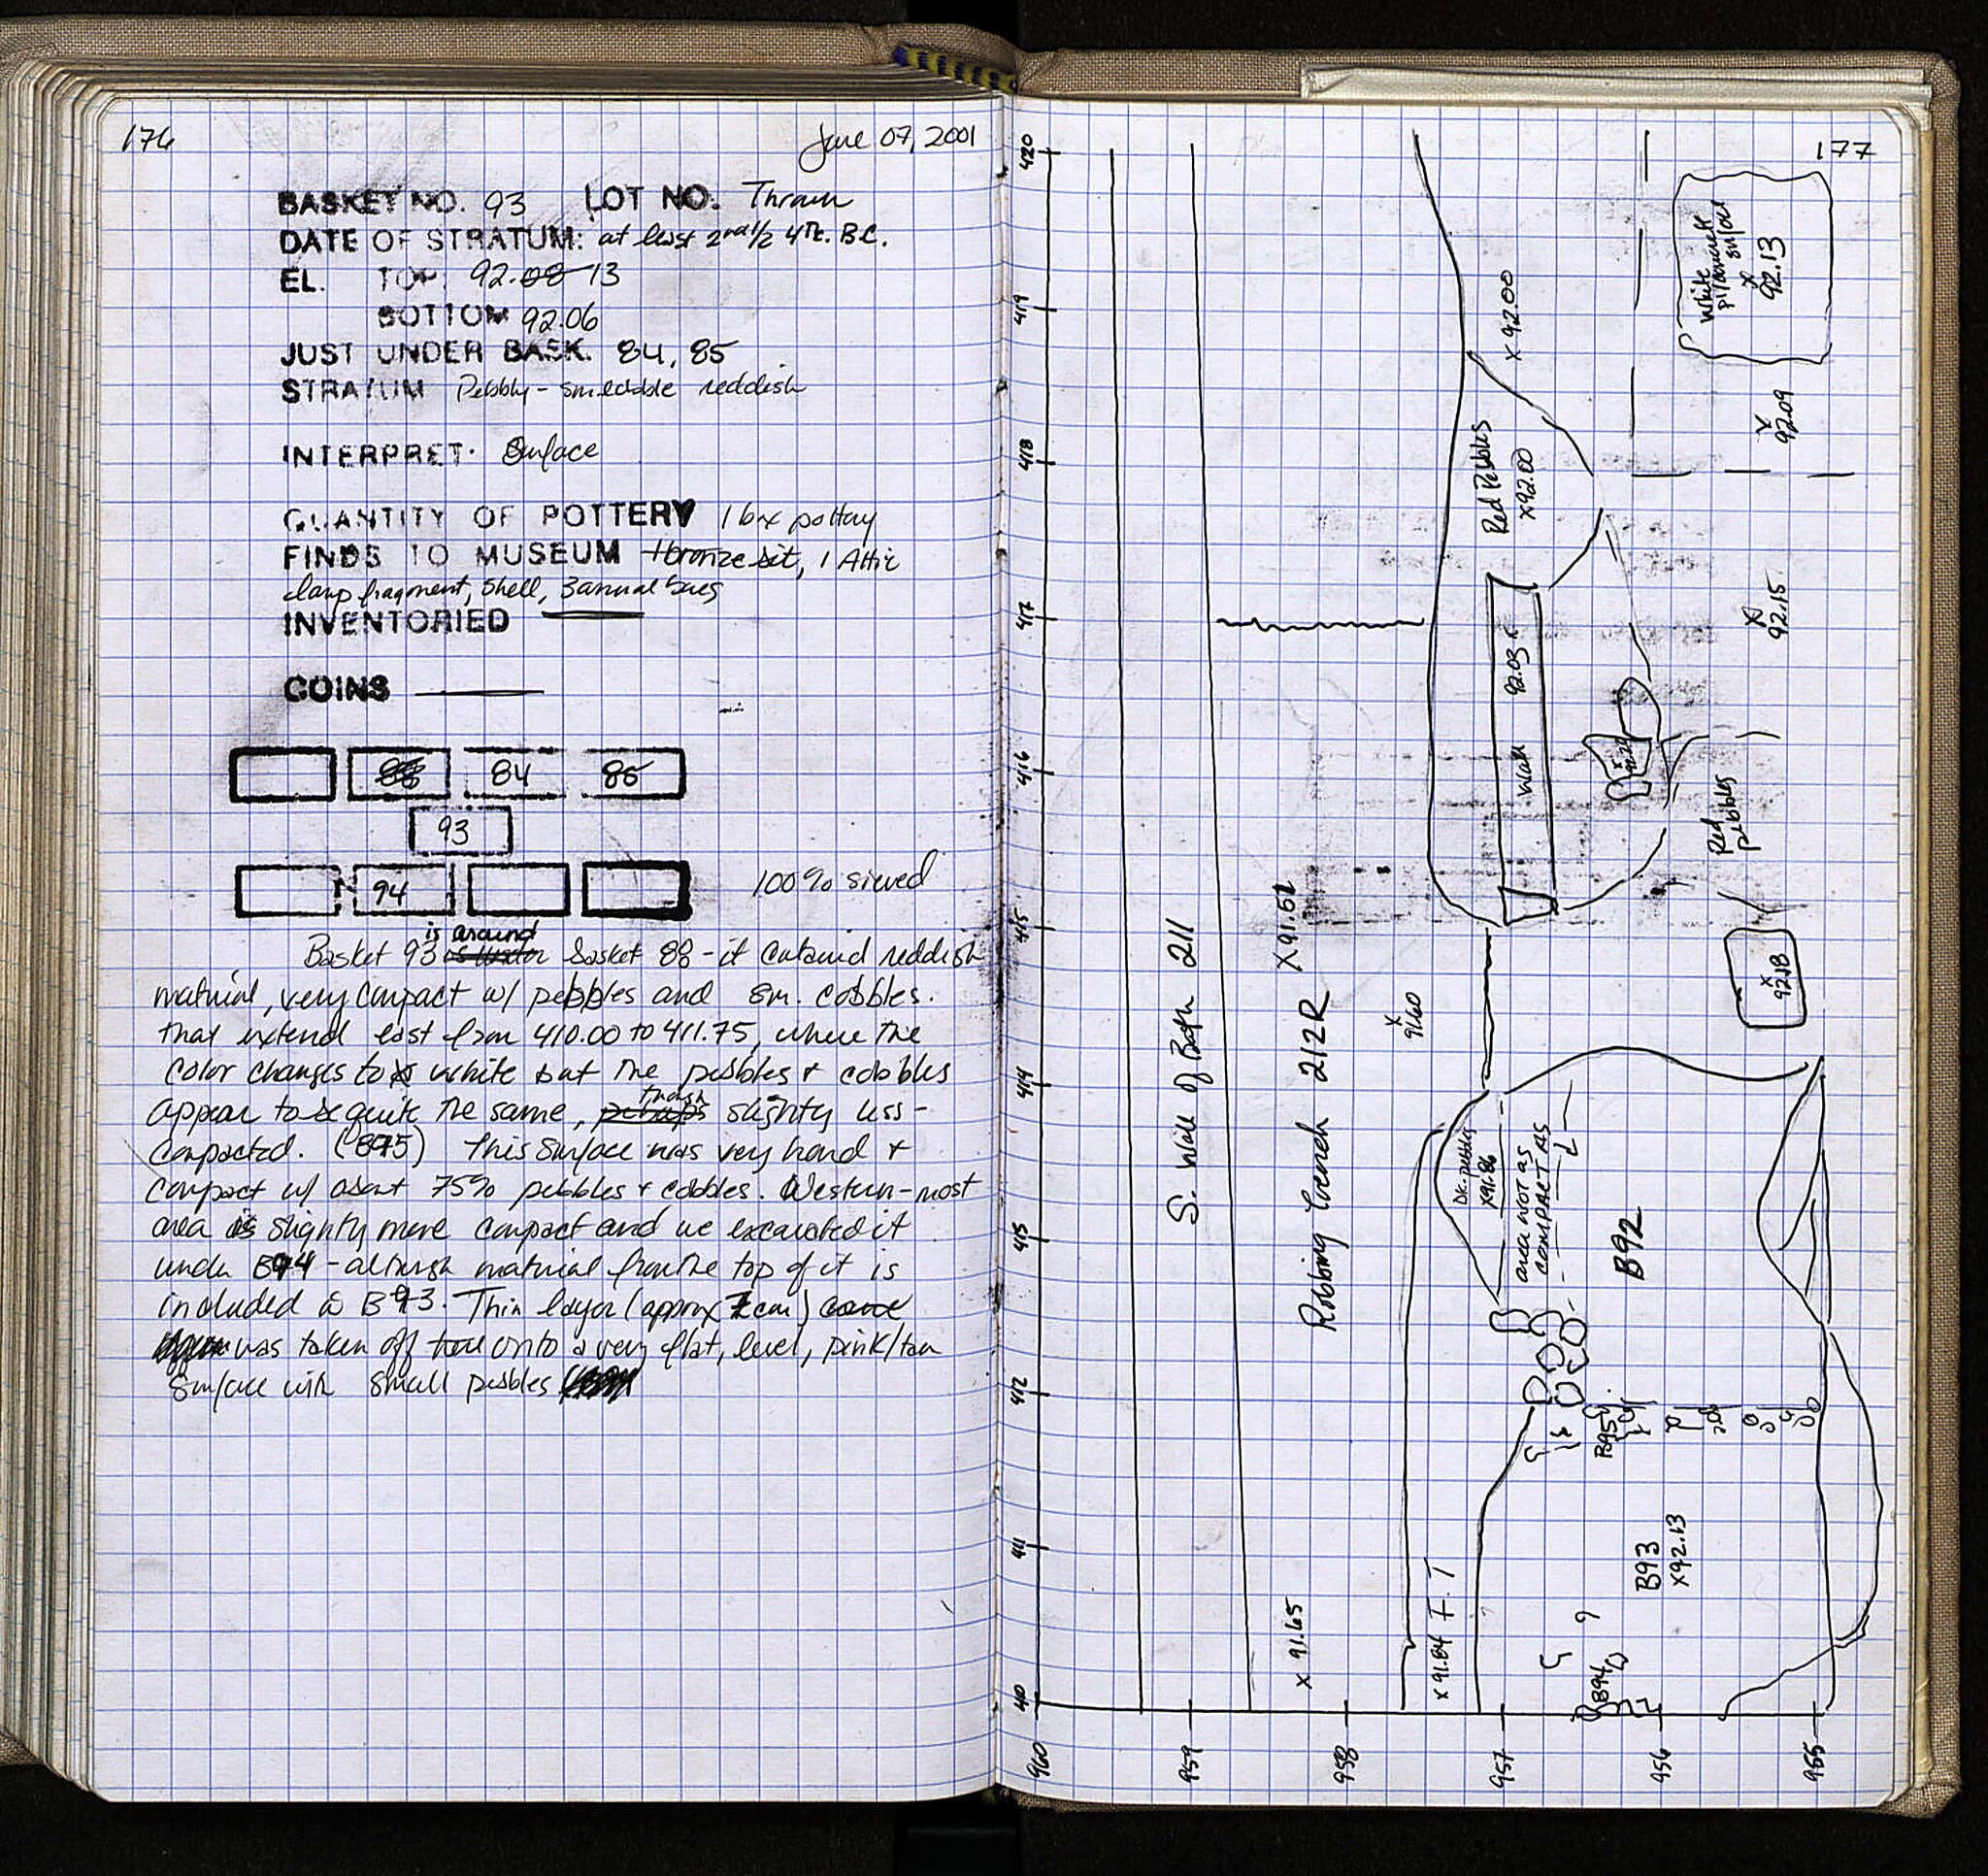 176
June 07, 2001
BASKET NO. 93 LOT NO. Thrown
DATE OF STRATUM: at least 2nd 1/2 4th c. B.C.
EL. TOP: 92.08 13
BOTTOM 92.06
JUST UNDER BASK. 84, 85
STRATUM Pebbly - sm. cobble reddish
INTERPRET. Surface
QUANTITY OF POTTERY 1 box pottery
FINDS TO MUSEUM 1 bronze bit, 1 Attic
lamp fragment, shell, 3 animal bones
INVENTORIED
COINS
88 84 85
93
94 100% sieved
is around
Basket 93 is under basket 88 - it contained reddish
material, very compact w/ pebbles and sm. cobbles.
that extend east from 410.00 to 411.75, where the
color changes to white but the pebbles + cobbles
though
appear to be quite the same, perhaps slightly less-
compacted. (B95) This surface was very hard +
compact w/ about 75% pebbles + cobbles. Western-most
area is slightly more compact and we excavated it
under B94 - although material from the top of it is
included in B93. Thin layer (approx 7 cm)
was taken off onto a very flat, level, pink/tan
surface with small pebbles
177
420
419
418
417
416
415
414
413
412
411
410
960
959
958
957
956
955
S. Wall of Bath 211
Robbing Trench 212R
X91.52
X 91.65
X 91.60
X 91.84 F. T
X 92.00
Red Pebbles
X92.00
Wall 92.03 x
White
surface
X
92.13
X
92.09
X
92.15
Red
pebbles
X
92.18
Dk. pebbles
X91.86
area not as
compact as
B92
B95
B93
X92.13
B94